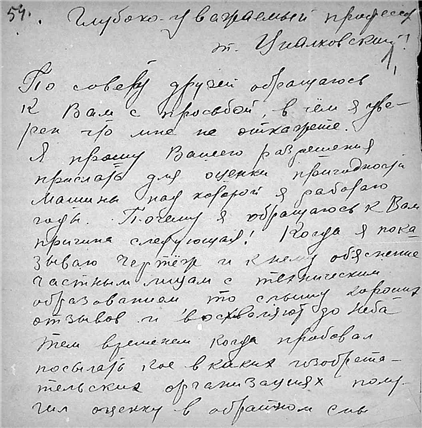 54. Глубоко-уважаемый професс
т. Циалковский!
По совету друзей обращаюсь
к Вам с просьбой, в чём я уве-
рен что мне не откажете.
Я прошу Вашего разрешения
прислать для оценки пригодность
машины над которой я работаю
годы. Почему я обращаюсь к Вам
причина следующая! Когда я пока
зываю чертёж и к нему объяснение
частным лицам с техническим
образованием то слышу хороших
отзывов и восхваляют до неба
тем временем когда пробовал
посылать кое в каких изобрета-
тельских организациях полу-
чил оценку в обратном смы